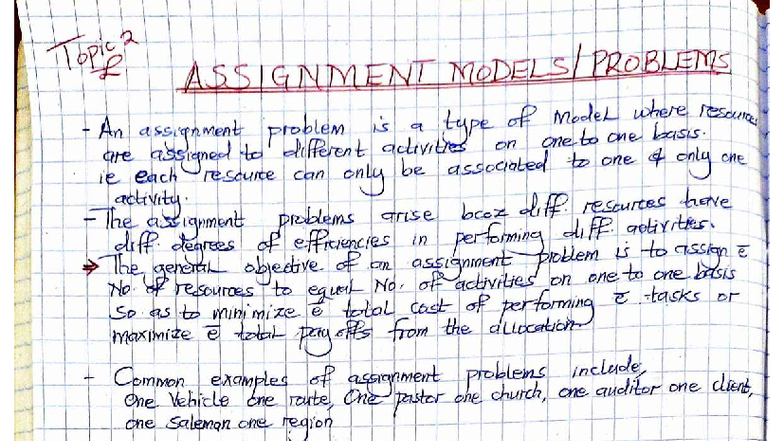 Topic 2
ASSIGNMENT MODELS/PROBLEMS
- An assignment problem is a type of Model where resources
are assigned to different activities on one to one basis.
ie each resource can only be associated to one & only one
activity.
- The assignment problems arise bcoz diff. resources have
diff degrees of efficiencies in performing diff. activities.
⇒ The general objective of an assignment problem is to assign ē
No. of resources to equal No. of activities on one to one basis
So as to minimize ē total cost of performing ē tasks or
maximize ē total pay offs from the allocation
- Common examples of assignment problems include,
One Vehicle one route, One pastor one church, one auditor one client,
one Saleman one region